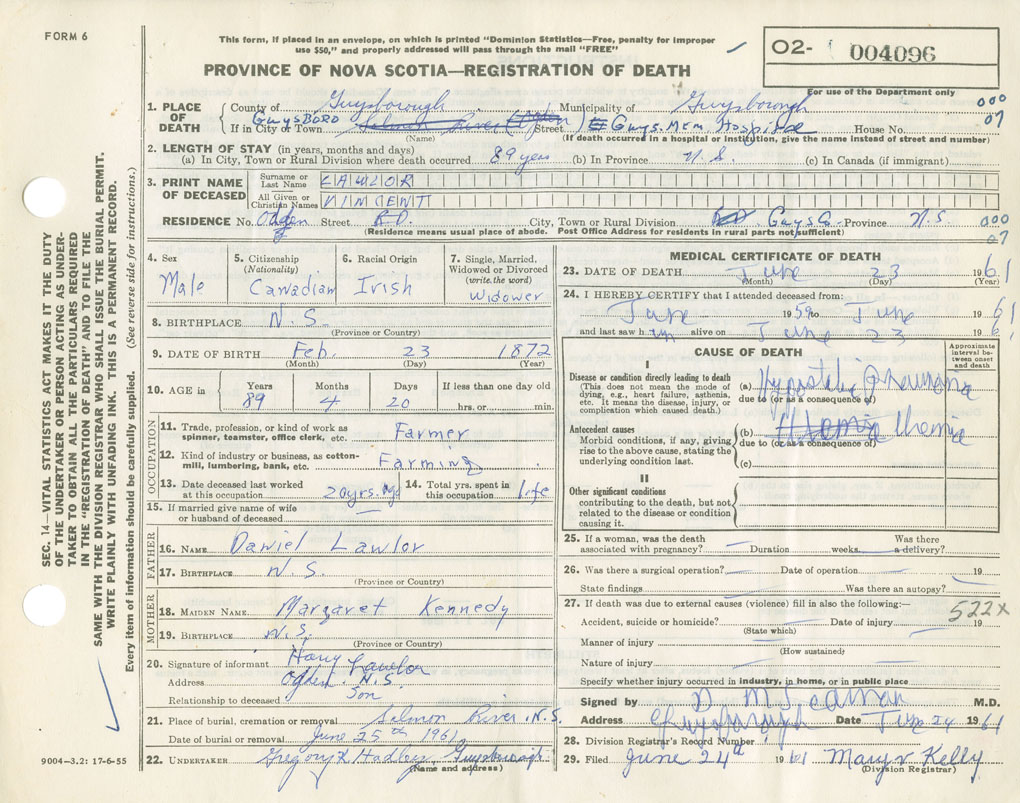 FORM 6
This form, if placed in an envelope, on which is printed "Dominion Statistics—Free, penalty for improper
use $50," and properly addressed will pass through the mail "FREE"
PROVINCE OF NOVA SCOTIA—REGISTRATION OF DEATH
02- 004096
For use of the Department only
000
07
1. PLACE OF DEATH
County of Guysborough Municipality of Guysborough
If in City or Town GUYSBORO Salmon River Street Guys. Mem. Hospital House No.
(Name) (If death occurred in a hospital or institution, give the name instead of street and number)
2. LENGTH OF STAY (in years, months and days)
(a) In City, Town or Rural Division where death occurred 89 years (b) In Province N.S. (c) In Canada (if immigrant)
3. PRINT NAME OF DECEASED
Surname or Last Name LAWLOR
All Given or Christian Names VINCENT
RESIDENCE No. Ogden Street R.D. City, Town or Rural Division Guys Co. Province N.S.
(Residence means usual place of abode. Post Office Address for residents in rural parts not sufficient)
000
07
4. Sex
Male
5. Citizenship
(Nationality)
Canadian
6. Racial Origin
Irish
7. Single, Married,
Widowed or Divorced
(write the word)
Widower
8. BIRTHPLACE N.S.
(Province or Country)
9. DATE OF BIRTH Feb. 23 1872
(Month) (Day) (Year)
10. AGE in
Years Months Days If less than one day old
89 4 20 hrs. or min.
OCCUPATION
11. Trade, profession, or kind of work as
spinner, teamster, office clerk, etc. Farmer
12. Kind of industry or business, as cotton-
mill, lumbering, bank, etc. Farming
13. Date deceased last worked
at this occupation 20 yrs. ago
14. Total yrs. spent in
this occupation life
15. If married give name of wife
or husband of deceased —
FATHER
16. NAME Daniel Lawlor
17. BIRTHPLACE N.S.
(Province or Country)
MOTHER
18. MAIDEN NAME Margaret Kennedy
19. BIRTHPLACE N.S.
(Province or Country)
20. Signature of informant Harry Lawlor
Address Ogden N.S.
Relationship to deceased Son
21. Place of burial, cremation or removal Salmon River, N.S.
Date of burial or removal June 25th 1961
22. UNDERTAKER Gregory R Hadley Guysborough
(Name and address)
9004-3.2: 17-6-55
MEDICAL CERTIFICATE OF DEATH
23. DATE OF DEATH June 23 1961
(Month) (Day) (Year)
24. I HEREBY CERTIFY that I attended deceased from:
June 1959 to June 1961
and last saw him alive on June 23 196
CAUSE OF DEATH
Approximate interval between onset and death
I
Disease or condition directly leading to death
(This does not mean the mode of
dying, e.g., heart failure, asthenia,
etc. It means the disease, injury, or
complication which caused death.)
(a) Hypostatic Pneumonia
due to (or as a consequence of)
Antecedent causes
Morbid conditions, if any, giving
rise to the above cause, stating the
underlying condition last.
(b) Uremia
due to (or as a consequence of)
(c)
II
Other significant conditions
contributing to the death, but not
related to the disease or condition
causing it.
25. If a woman, was the death
associated with pregnancy? — Duration weeks Was there a delivery?
26. Was there a surgical operation? — Date of operation — 19
State findings Was there an autopsy?
27. If death was due to external causes (violence) fill in also the following:—
522x
Accident, suicide or homicide? Date of injury 19
(State which)
Manner of injury
(How sustained)
Nature of injury
Specify whether injury occurred in industry, in home, or in public place
Signed by M.D.
Address Guysborough Date June 24 1961
28. Division Registrar's Record Number
29. Filed June 24th 1961 Mary Kelly
(Division Registrar)
SEC. 14—VITAL STATISTICS ACT MAKES IT THE DUTY
OF THE UNDERTAKER OR PERSON ACTING AS UNDER-
TAKER TO OBTAIN ALL THE PARTICULARS REQUIRED
IN THE "REGISTRATION OF DEATH" AND TO FILE THE
SAME WITH THE DIVISION REGISTRAR WHO SHALL ISSUE THE BURIAL PERMIT.
WRITE PLAINLY WITH UNFADING INK. THIS IS A PERMANENT RECORD.
Every item of information should be carefully supplied. (See reverse side for instructions.)